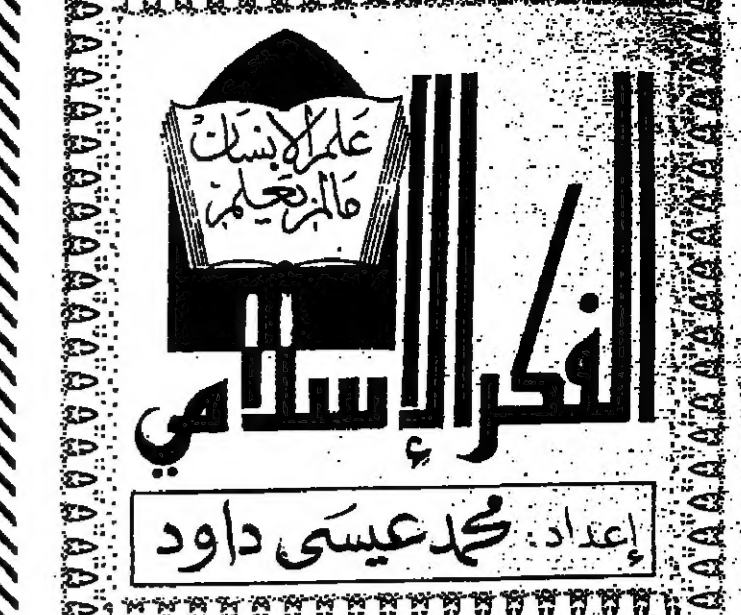 علم الإنسان
مالم يعلم
الفكر الإسلامي
إعداد: محمد عيسى داود